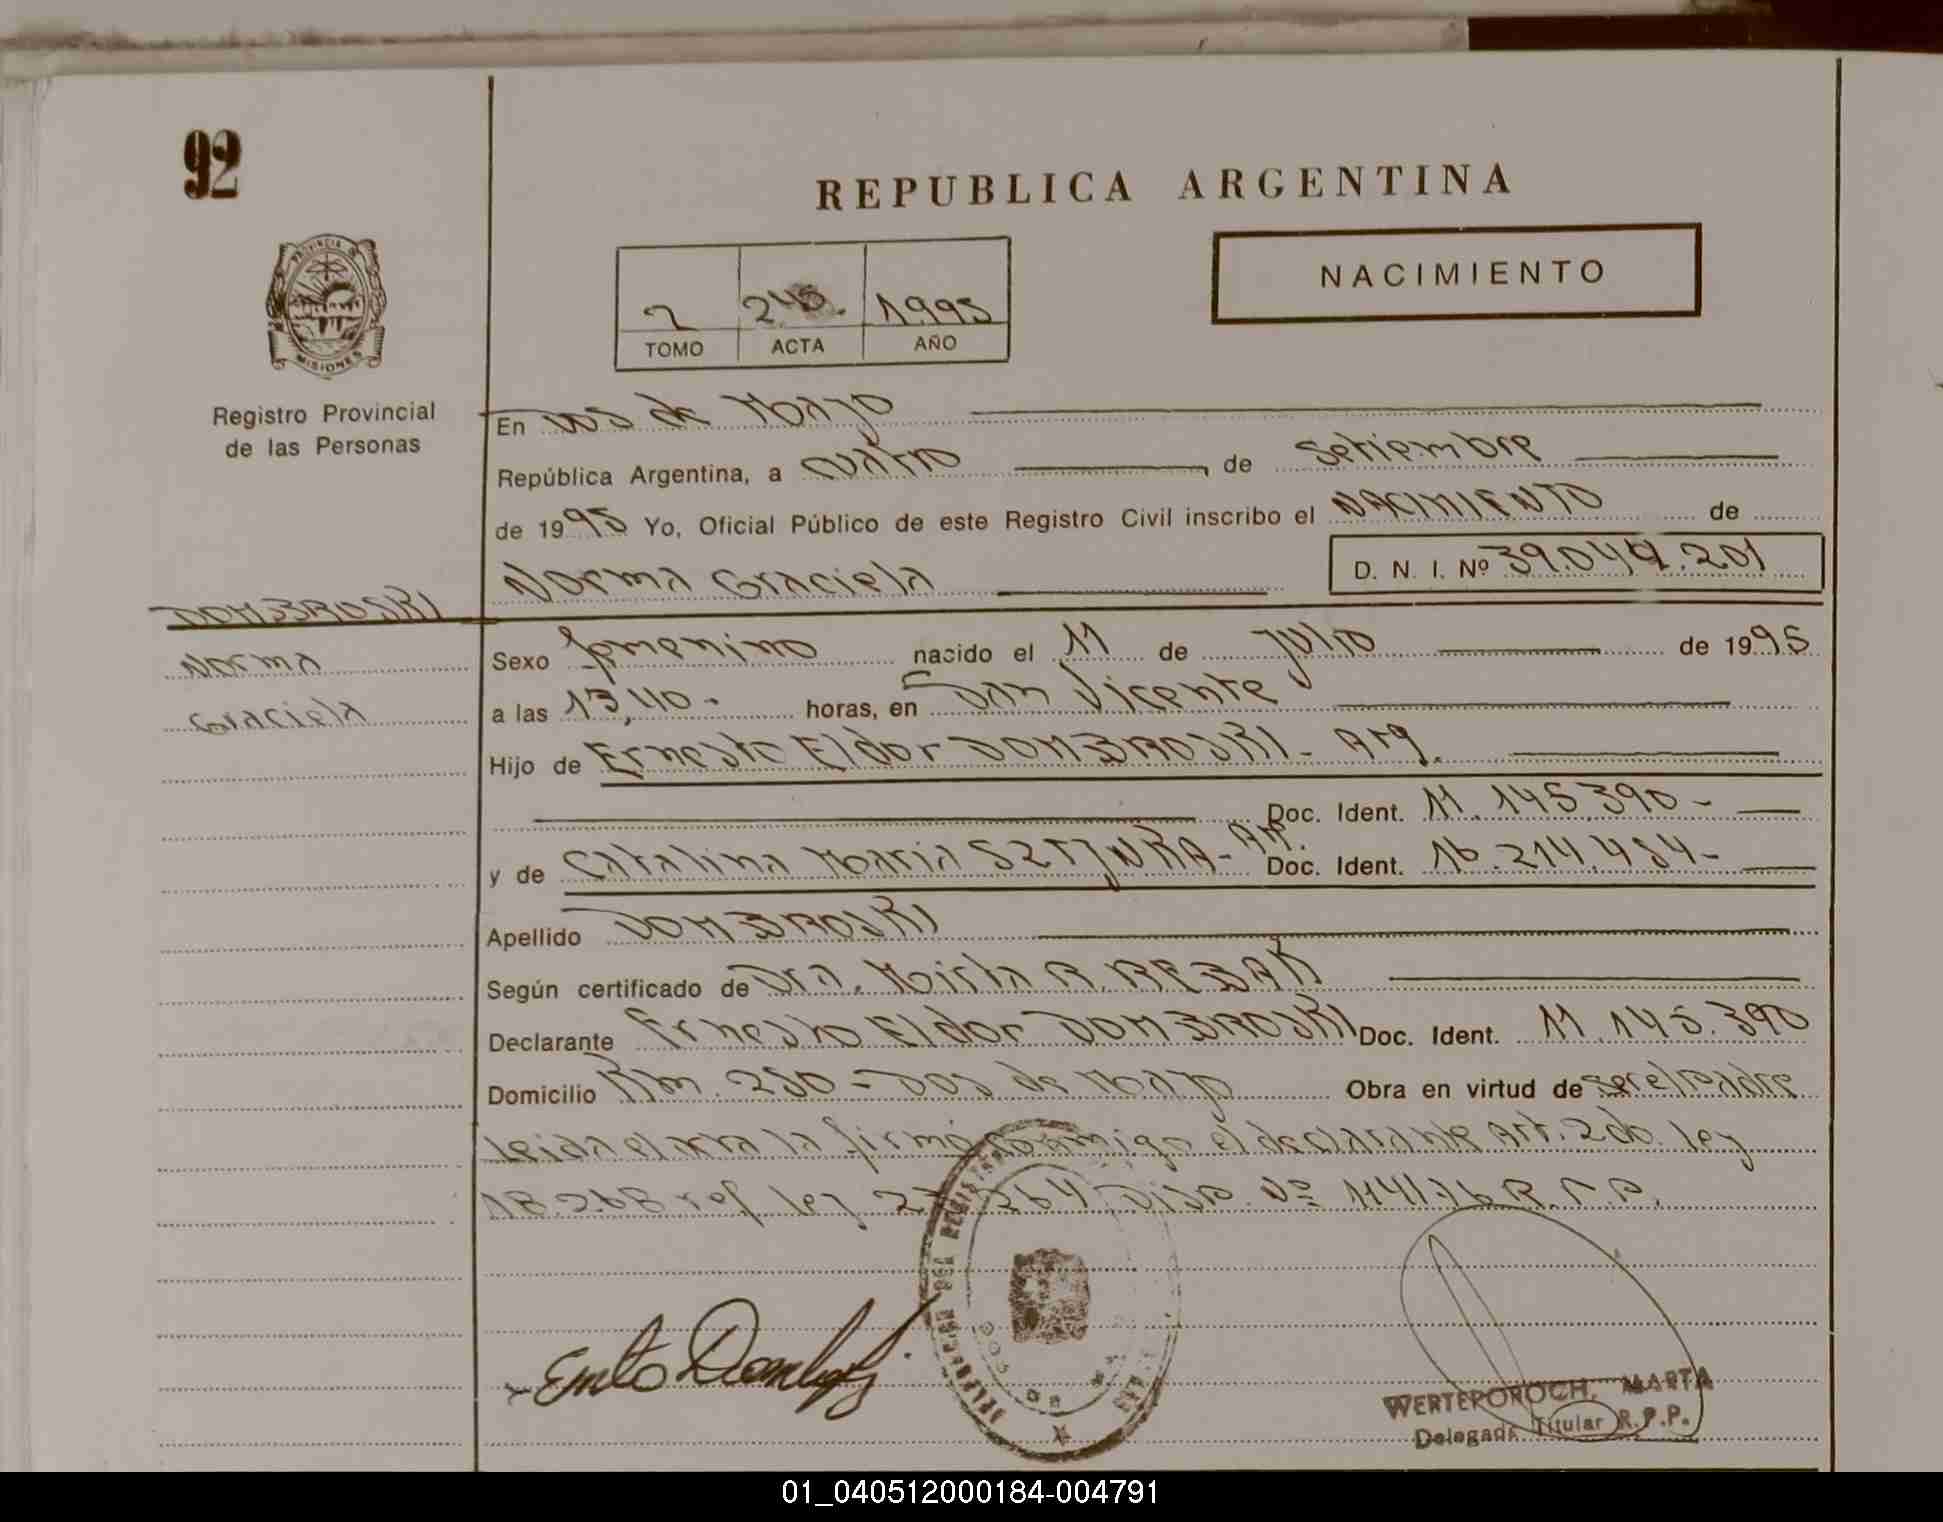 92
REPUBLICA ARGENTINA
PROVINCIA DE
MISIONES
2 1995
TOMO ACTA AÑO
NACIMIENTO
Registro Provincial
de las Personas
En Dos de Mayo
República Argentina, a cuatro de Setiembre
de 1995 Yo, Oficial Público de este Registro Civil inscribo el NACIMIENTO de
Norma Graciela D. N. I. Nº 39.044.201
DOMBROSKI
Norma
Graciela
Sexo femenino nacido el 11 de Julio de 1995
a las 13,40. horas, en San Vicente
Hijo de Ernesto Eldor DOMBROSKI - Arg.
Doc. Ident. 11.145.390 -
y de Catalina Maria SZTJNRA - Ar. Doc. Ident. 16.214.484 -
Apellido DOMBROSKI
Según certificado de Dra. Mirta R. REBAK
Declarante Ernesto Eldor DOMBROSKI Doc. Ident. 11.145.390
Domicilio Km. 280 - Dos de Mayo Obra en virtud de ser el padre
Leida el acta la firmó conmigo el declarante Art. 2do. Ley
18.268 ref ley 264 Disp. Nº R.P.P.
DELEGACION DEL REGISTRO
DOS DE
WERTEPOROCH, MARTA
Delegada Titular R.P.P.
01_040512000184-004791